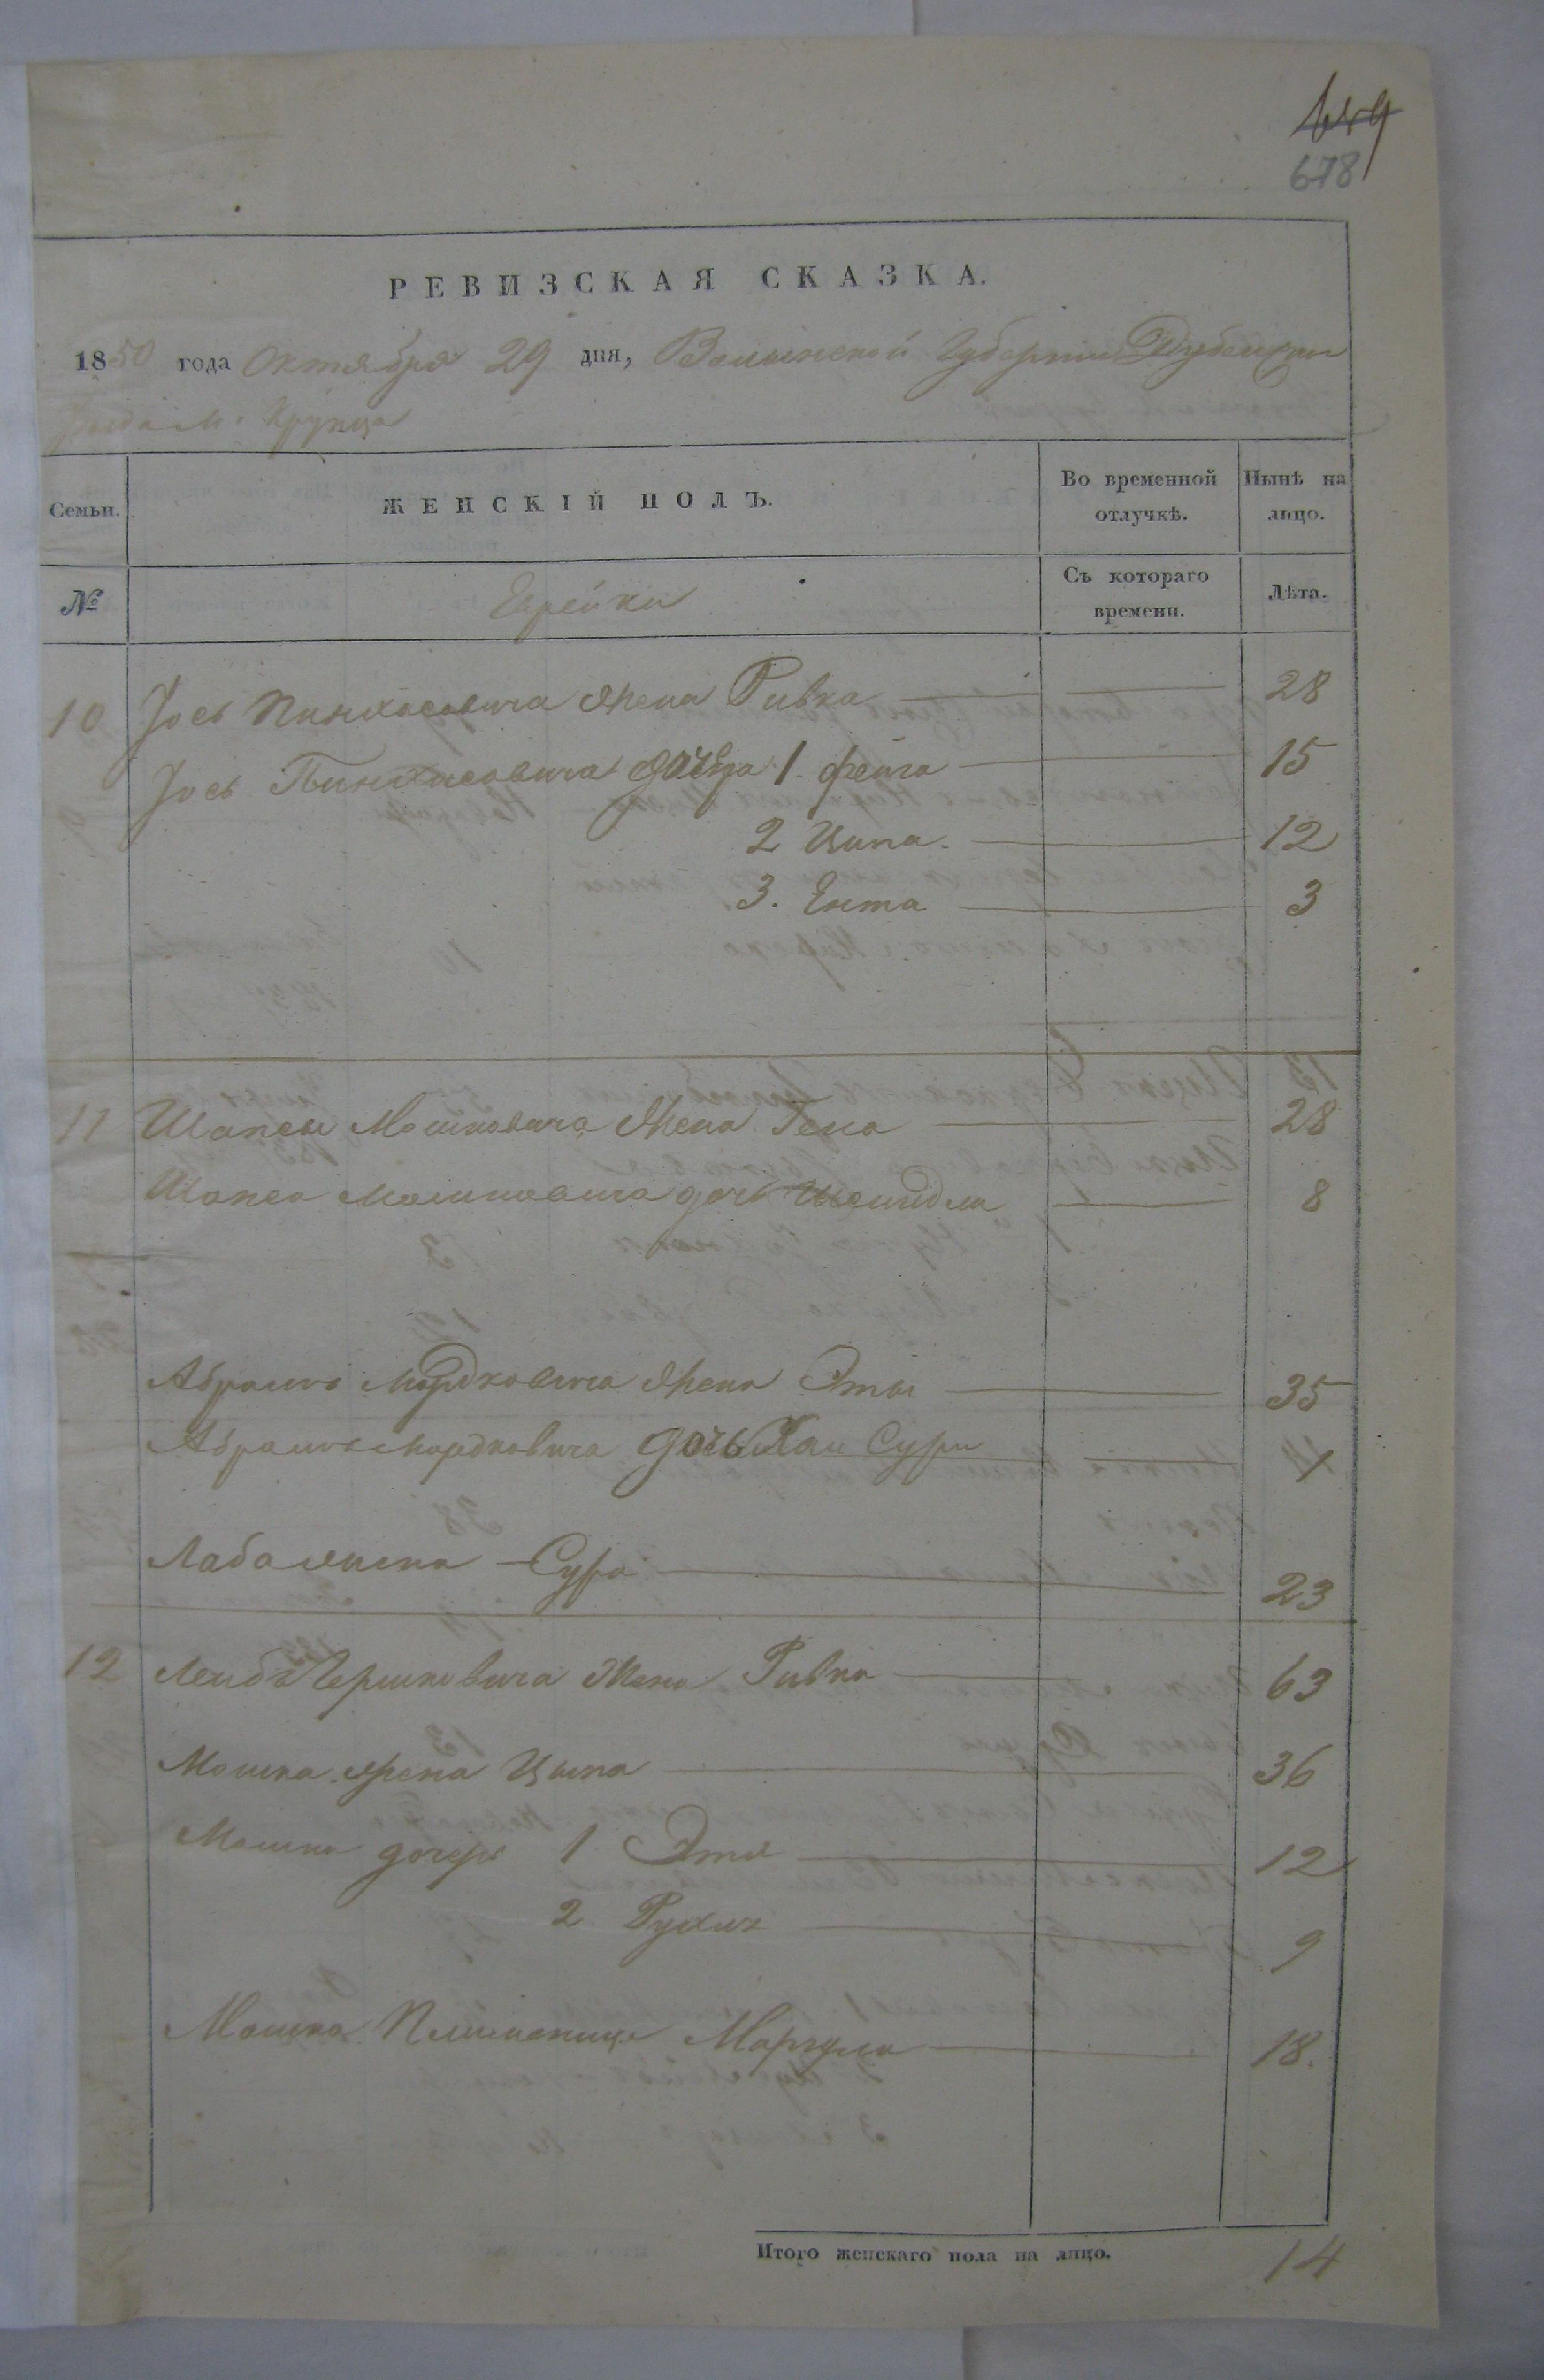 649
678
РЕВИЗСКАЯ СКАЗКА.
1850 года Октября 29 дня, Волынской Губернии Дубенскаго
уезда м. Крупца
Семьи.
ЖЕНСКІЙ ПОЛЪ.
Во временной отлучкѣ.
Нынѣ на лицо.
№
Еврейки
Съ котораго времени.
Лѣта.
10 Іось Пинхасовича жена Ривка 28
Іось Пинхасовича 1. фейга 15
2 Ципа. 12
3. Ента 3
11 Шапсы Мошковича жена Гена 28
Шапса Мошковича дочь Шейндля 8
Абрамъ Мордковича жена Эты 35
Абрамъ Мордковича дочь Хаи Суры
Сура 23
12 Лейба Гершковича жена Ривка 63
Мошка жена Цыпа 36
Мошка дочеры 1 Этя 12
2 Рухля 9
Мошка Племеница Маргуля 18.
Итого женскаго пола на лицо. 14